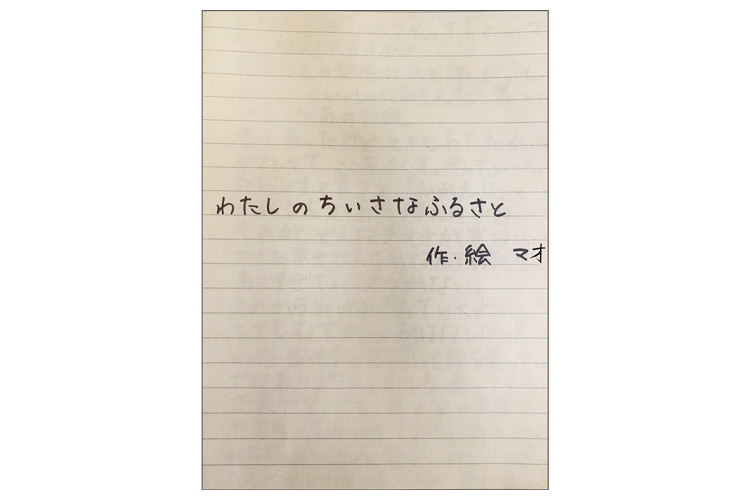 わたしのちいさなふるさと
作・絵 マオ